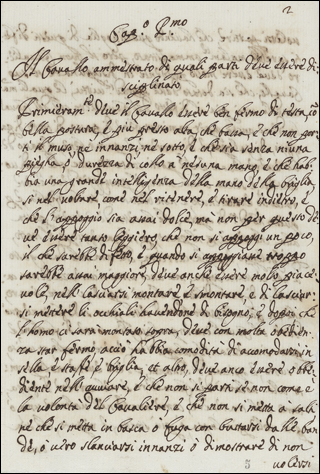 2
Cap.º P.mo
Il Cavallo ammestrato di quali parti deve essere di=
sciplinato
Primieram.te deve il Cavallo essere ben fermo di testa, cõ
bella postura, è più presto alta che bassa, è che non por=
ti il muso nè innanzi, nè sotto, è che sia senza niuna
 ò durezza di collo à nesuna mano, è che hab=
bia una grande intelligenza della mano della briglia,
si nel voltare come nel ritenere, è tirare indietro, è
che l'appoggio sia assai dolce, ma non per questo de=
ve essere tanto leggiero, che non si appoggi un poco,
il che sarebbe difetto, è quando si appoggiasse troppo
sarebbe assai maggiore, deve anche essere molto piace=
vole, nell lasciarsi montare è smontare, è di lasciar=
si mettere li occhiali havendone di bisogno, è doppo che
l'homo ci sarà montato sopra, deve con molta obedien=
za star fermo, acciò habbia comodità di accomodarsi in
sella è staffe è briglia, et altro, deve anco essere obe=
diente nell aviare, è che non si parti se non come è
la volontà del Cavaliere, è che non si metta a sali=
re che si metta in  ò fuga con  dalle ban=
de, ò vero slanciarsi innanzi ò di mostrare di non
volersi